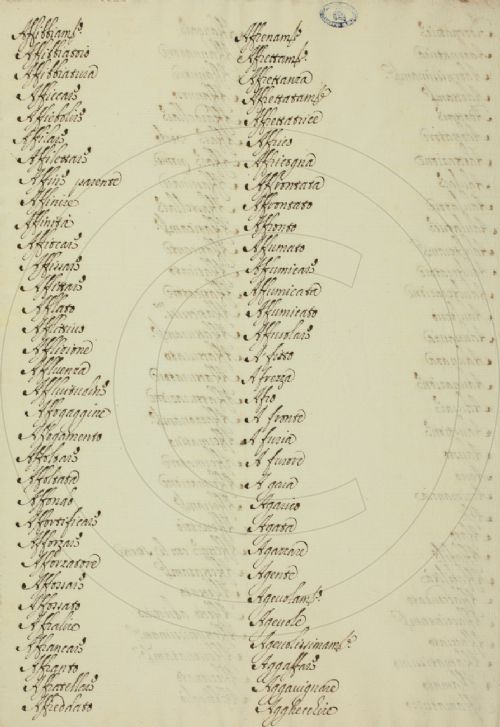 Affibbiam.to
Affibbiatoio
Affibbiatura
Afficcare
Affiebolire
Affilare
Affilettare
Affine parente
Affinire
Affinità
Affiocare
Affisare
Affittare
Afflato
Afflittivo
Afflizione
Affluenza
Affogaggine
Affogamento
Affoltare
Affoltata
Affondo
Affortificare
Afforzare
Afforzatore
Affossare
Affossato
Affralire
Affrancare
Affranto
Affratellare
Affreddato
Affrenam.to
Affrettam.to
Affrettanza
Affrettatam.te
Affrettatrice
Affrico
Affrontata
Affrontato
Affronto
Affumato
Affumicare
Affumicata
Affumicato
Affusolare
A fitto
A forza
A fronte
A furia
A furore
A gara
Agarico
Agata
Agente
Agevolam.te
Agevole
Agevolissimam.te
Aggaffare
Aggavignare
Agghecchire